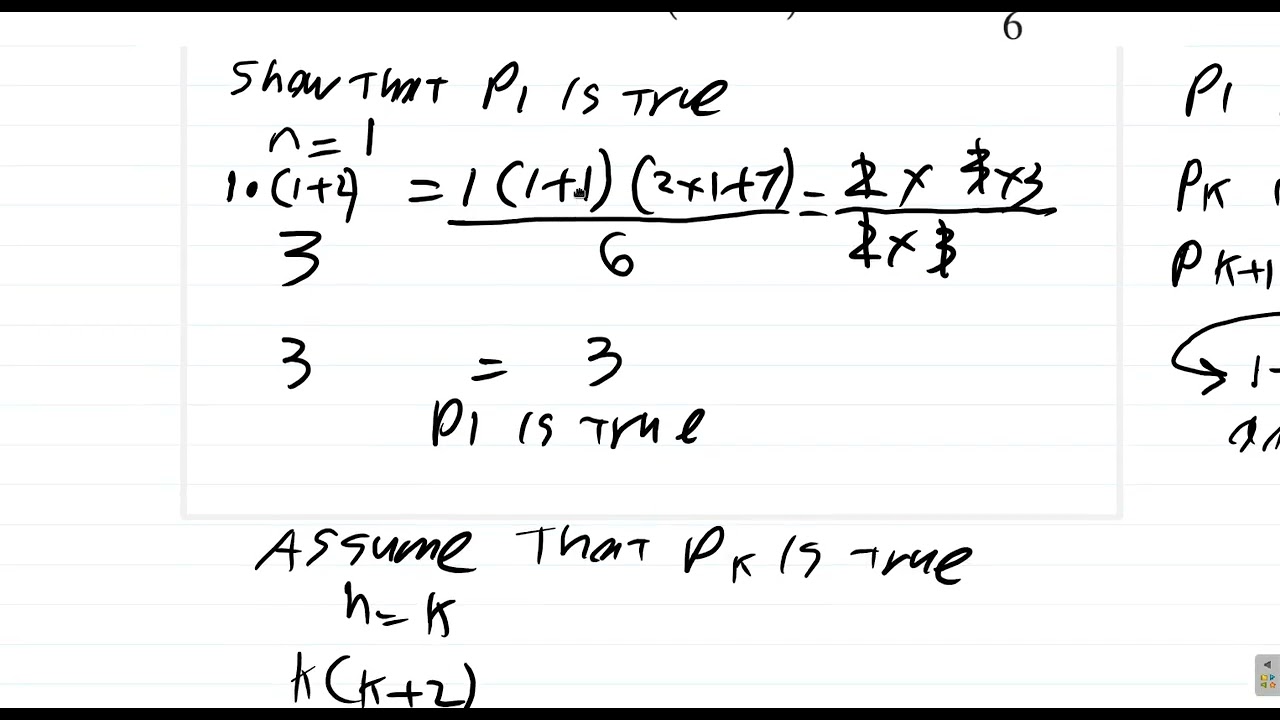 6
Show That P1 is true
n = 1
1·(1+2) = 1(1+1)(2x1+7) = 2 x 3x3
3 6 2x3
3 = 3
P1 is true
Assume That PK is true
n = K
K(K+2)
P1
PK
PK+1
1-